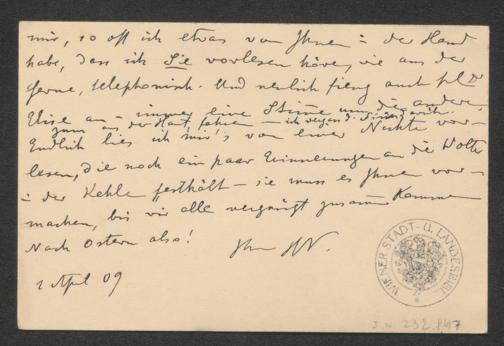 mir, so oft ich etwas von Ihnen in der Hand
habe, dass ich Sie vorlesen höre, wie aus der
Ferne, telephonisch. Und neulich fieng auch
Elise an – immer eine Stimme um die andere,
zum aus der Haut fahren – ich
Endlich lies ich mir's von einer Nichte vor-
lesen, die noch ein paar Erinnerungen an die Wolter
in der Kehle festhält – sie muss es Ihnen vor-
machen, bis wir alle vergnügt zusammenkommen
Nach Ostern also!
Ihr
2 April 09
WIENER STADT- U. LANDESBIBL.
J.N. 232.847